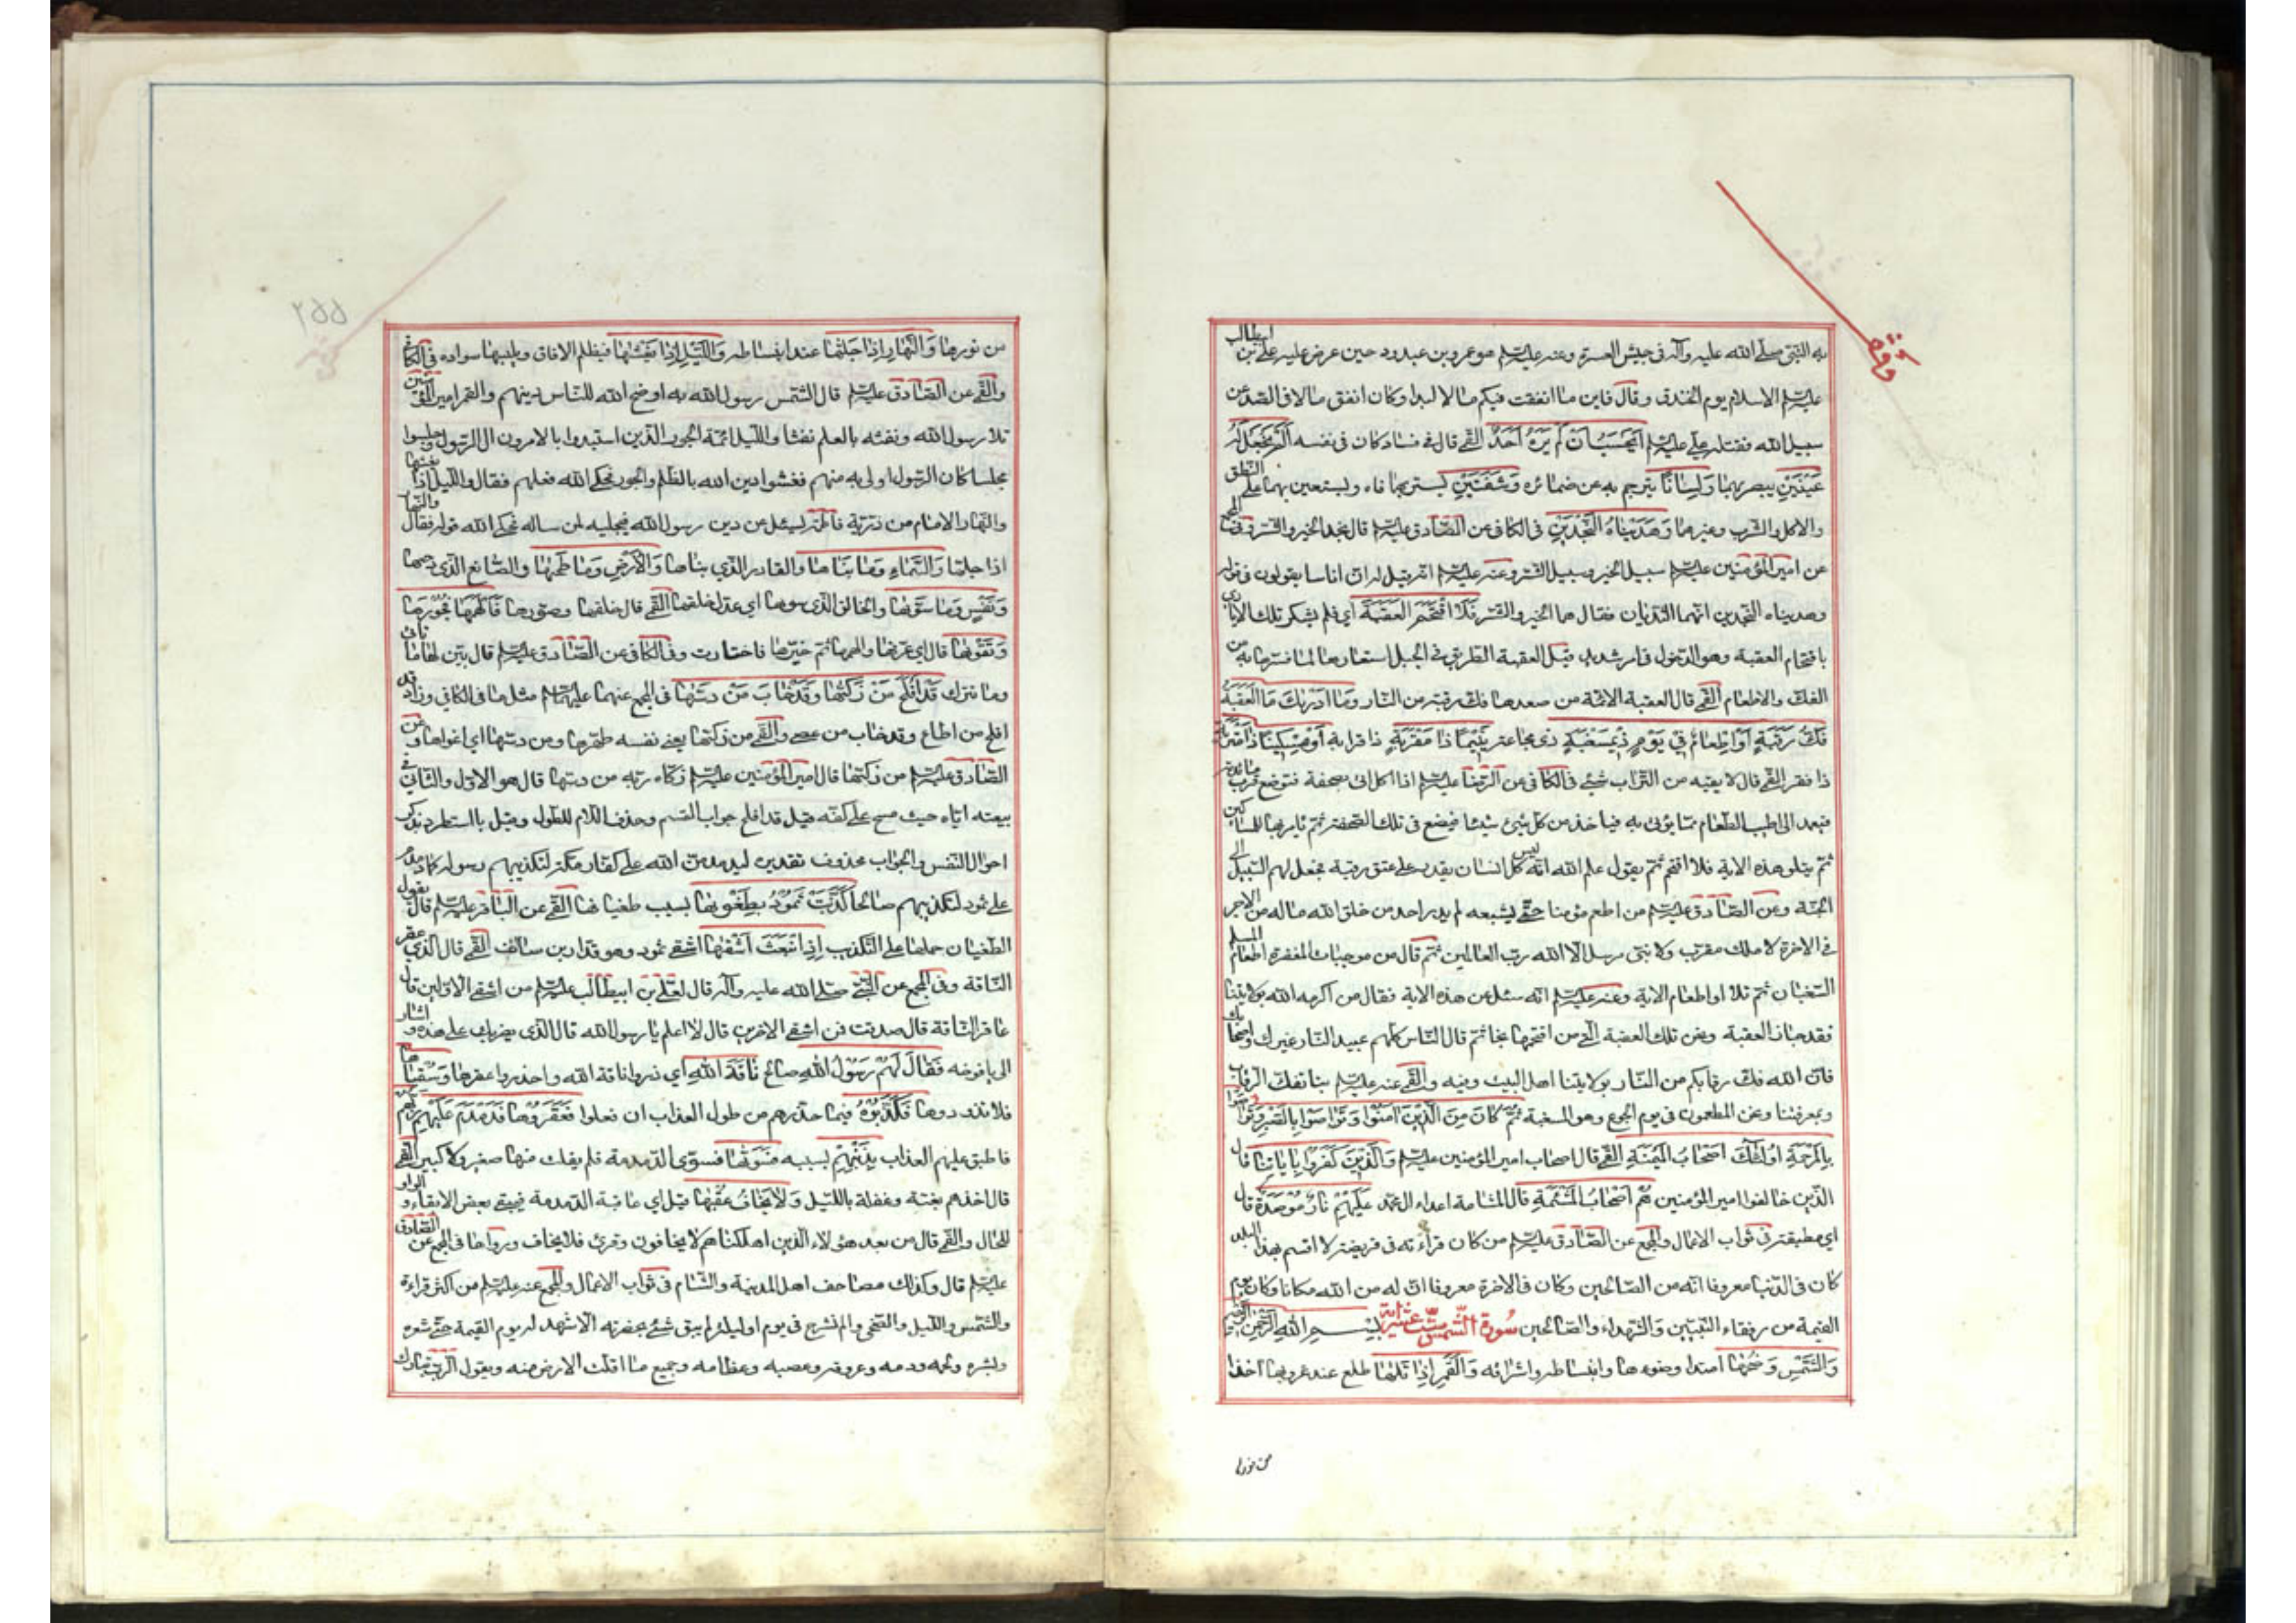 به النبي صلى الله عليه وآله في جيش العسرة وعنه عليه السلم هو عمرو بن عبدود حين عرض عليه علي بن ابيطالب
عليه السلم الاسلام يوم الخندق وقال فاين ما انفقت فيكم مالا لبدا وكان انفق مالا في الصد عن
سبيل الله فقتله علي عليه السلم اَيَحْسَبُ اَنْ لَمْ يَرَهُ اَحَدٌ القمي قال في فساد كان في نفسه اَلَمْ نَجْعَلْ لَهُ
عَيْنَيْنِ يبصر بهما وَلِسٰانًا يترجم به عن ضمائره وَشَفَتَيْنِ يستر بهما فاه ويستعين بهما على النطق
والاكل والشرب وغيرها وَهَدَيْنٰاهُ النَّجْدَيْنِ في الكافي عن الصادق عليه السلم قال نجد الخير والشر وفي المجمع
عن امير المؤمنين عليه السلم سبيل الخير وسبيل الشر وعنه عليه السلم انه قيل له ان اناسا يقولون في قوله
وهديناه النجدين انهما الثديان فقال هما الخير والشر فَلَا اقْتَحَمَ الْعَقَبَةَ اي فلم يشكر تلك الايادي
باقتحام العقبة وهو الدخول في امر شديد قيل العقبة الطريق في الجبل استعارها لما فسرها به من
الفك والاطعام القمي قال العقبة الائمة من صعدها فك رقبته من النار وَمٰا اَدْرٰيكَ مَا الْعَقَبَةُ
فَكُّ رَقَبَةٍ اَوْ اِطْعٰامٌ فِي يَوْمٍ ذِي مَسْغَبَةٍ ذي مجاعة يَتِيمًا ذٰا مَقْرَبَةٍ ذا قرابة اَوْ مِسْكِينًا ذٰا مَتْرَبَةٍ
ذا فقر القمي قال لا يقيه من التراب شيء في الكافي عن الرضا عليه السلم اذا اكل اتى بصحفة فتوضع قرب مائدته
فيعمد الى اطيب الطعام مما يؤتى به فياخذ من كل شيء شيئا فيضع في تلك الصحفة ثم يامر بها للمساكين
ثم يتلو هذه الاية فلا اقتحم ثم يقول علم الله انه ليس كل انسان يقدر على عتق رقبة فجعل لهم السبيل الى
الجنة وعن الصادق عليه السلم من اطعم مؤمنا حتى يشبعه لم يدر احد من خلق الله ما له من الاجر
في الاخرة لا ملك مقرب ولا نبي مرسل الا الله رب العالمين ثم قال من موجبات المغفرة اطعام المسلم
السغبان ثم تلا او اطعام الاية وعنه عليه السلم انه سئل عن هذه الاية فقال من اكرمه الله بولايتنا
فقد جاز العقبة ونحن تلك العقبة التي من اقتحمها نجا ثم قال الناس كلهم عبيد النار غيرك واصحابك
فان الله فك رقابكم من النار بولايتنا اهل البيت وفيه والقمي عنه عليه السلم بنا تفك الرقاب
وبمعرفتنا ونحن المطعمون في يوم الجوع وهو المسغبة ثُمَّ كٰانَ مِنَ الَّذِينَ اٰمَنُوا وَتَوٰاصَوْا بِالصَّبْرِ وَتَوٰاصَوْا
بِالْمَرْحَمَةِ اُولٰئِكَ اَصْحٰابُ الْمَيْمَنَةِ القمي قال اصحاب امير المؤمنين عليه السلم وَالَّذِينَ كَفَرُوا بِاٰيٰاتِنٰا قال
الذين خالفوا امير المؤمنين هُمْ اَصْحٰابُ الْمَشْئَمَةِ قال المشامة اعداء ال محمد عَلَيْهِمْ نٰارٌ مُؤْصَدَةٌ قال
اي مطبقة في ثواب الاعمال والمجمع عن الصادق عليه السلم من كان قراءته في فريضة لا اقسم بهذا البلد
كان في الدنيا معروفا انه من الصالحين وكان في الاخرة معروفا ان له من الله مكانا وكان يوم
القيمة من رفقاء النبيين والشهداء والصالحين سُورة الشّمس ستّ عشر اية بِسْــمِ اللهِ الرَّحْمٰنِ الرَّحِيمِ
وَالشَّمْسِ وَضُحٰيهٰا امتداد ضوءها وانبساطه واشراقه وَالْقَمَرِ اِذٰا تَلٰيهٰا طلع عند غروبها اخذا
من نورها
من نورها وَالنَّهٰارِ اِذٰا جَلّٰيهٰا عند انبساطه وَاللَّيْلِ اِذٰا يَغْشٰيهٰا فيظلم الافاق ويلبسها سواده في الكافي
والقمي عن الصادق عليه السلم قال الشمس رسول الله به اوضح الله للناس دينهم والقمر امير المؤمنين
تلا رسول الله ونفثه بالعلم نفثا والليل ائمة الجور الذين استبدوا بالامر دون ال الرسول وجلسوا
مجلسا كان الرسول اولى به منهم فغشوا دين الله بالظلم والجور فحكى الله فعلهم فقال والليل اذا يغشيها
والنهار الامام من ذرية فاطمة ليسئل عن دين رسول الله فيجليه لمن ساله فحكى الله قوله فقال والنهار
اذا جليها وَالسَّمٰاءِ وَمٰا بَنٰاهٰا والقادر الذي بناها وَالْاَرْضِ وَمٰا طَحٰيهٰا والصانع الذي دحيها
وَنَفْسٍ وَمٰا سَوّٰيهٰا والخالق الذي سويها اي عدل خلقها القمي قال خلقها وصورها فَاَلْهَمَهٰا فُجُورَهٰا
وَتَقْوٰيهٰا قال اي عرفها والهمها ثم خيرها فاختارت وفي الكافي عن الصادق عليه السلم قال بين لها ما تاتي
وما تترك قَدْ اَفْلَحَ مَنْ زَكّٰيهٰا وَقَدْ خٰابَ مَنْ دَسّٰيهٰا في المجمع عنهما عليهما السلم مثل ما في الكافي وزاد قد
افلح من اطاع وقد خاب من عصى والقمي من زكيها يعني نفسه طهرها ومن دسيها اي اغواها وعن
الصادق عليه السلم من زكيها قال امير المؤمنين عليه السلم زكاه ربه من دسيها قال هو الاول والثاني في
بيعته اياه حيث مسح على كفه قيل قد افلح جواب القسم وحذف اللام للطول وقيل بااستطرد بذكر
احوال النفس والجواب محذوف تقديره ليدمدمن الله على كفار مكة لتكذيبهم رسوله كما دمدم
على ثمود لتكذيبهم صالحا كَذَّبَتْ ثَمُودُ بِطَغْوٰيهٰا بسبب طغيانها القمي عن الباقر عليه السلم قال يقول
الطغيان حملها على التكذيب اِذِ انْبَعَثَ اَشْقٰيهٰا اشقى ثمود وهو قدار بن سالف القمي قال الذي عقر
الناقة وفي المجمع عن النبي صلى الله عليه وآله قال لعلي بن ابيطالب عليه السلم من اشقى الاولين قال
عاقر الناقة قال صدقت فمن اشقى الاخرين قال لا اعلم يا رسول الله قال الذي يضربك على هذه واشار
الى يافوخه فَقٰالَ لَهُمْ رَسُولُ اللهِ صالح نٰاقَةَ اللهِ اي ذروا ناقة الله واحذروا عقرها وَسُقْيٰاهٰا
فلا تذودوها فَكَذَّبُوهُ فيما حذرهم من حلول العذاب ان فعلوا فَعَقَرُوهٰا فَدَمْدَمَ عَلَيْهِمْ رَبُّهُمْ
فاطبق عليهم العذاب بِذَنْبِهِمْ بسببه فَسَوّٰيهٰا فسوى الدمدمة فلم يفلت منها صغير ولا كبير القمي
قال اخذهم بغتة وغفلة بالليل وَلٰا يَخٰافُ عُقْبٰيهٰا قيل اي عاقبة الدمدمة فيبقي بعض الابقاء والواو
للحال والقمي قال من بعد هؤلاء الذين اهلكناهم لا يخافون وقرئ فلا يخاف ورواها في المجمع عن الصادق
عليه السلم قال وكذلك مصاحف اهل المدينة والشام في ثواب الاعمال والمجمع عنه عليه السلم من اكثر قراءة
والشمس والليل والضحى والم نشرح في يوم او ليلة لم يبق شيء بحضرته الا شهد له يوم القيمة حتى شعره
وبشره ولحمه ودمه وعروقه وعصبه وعظامه وجميع ما اقلت الارض منه ويقول الرب تبارك